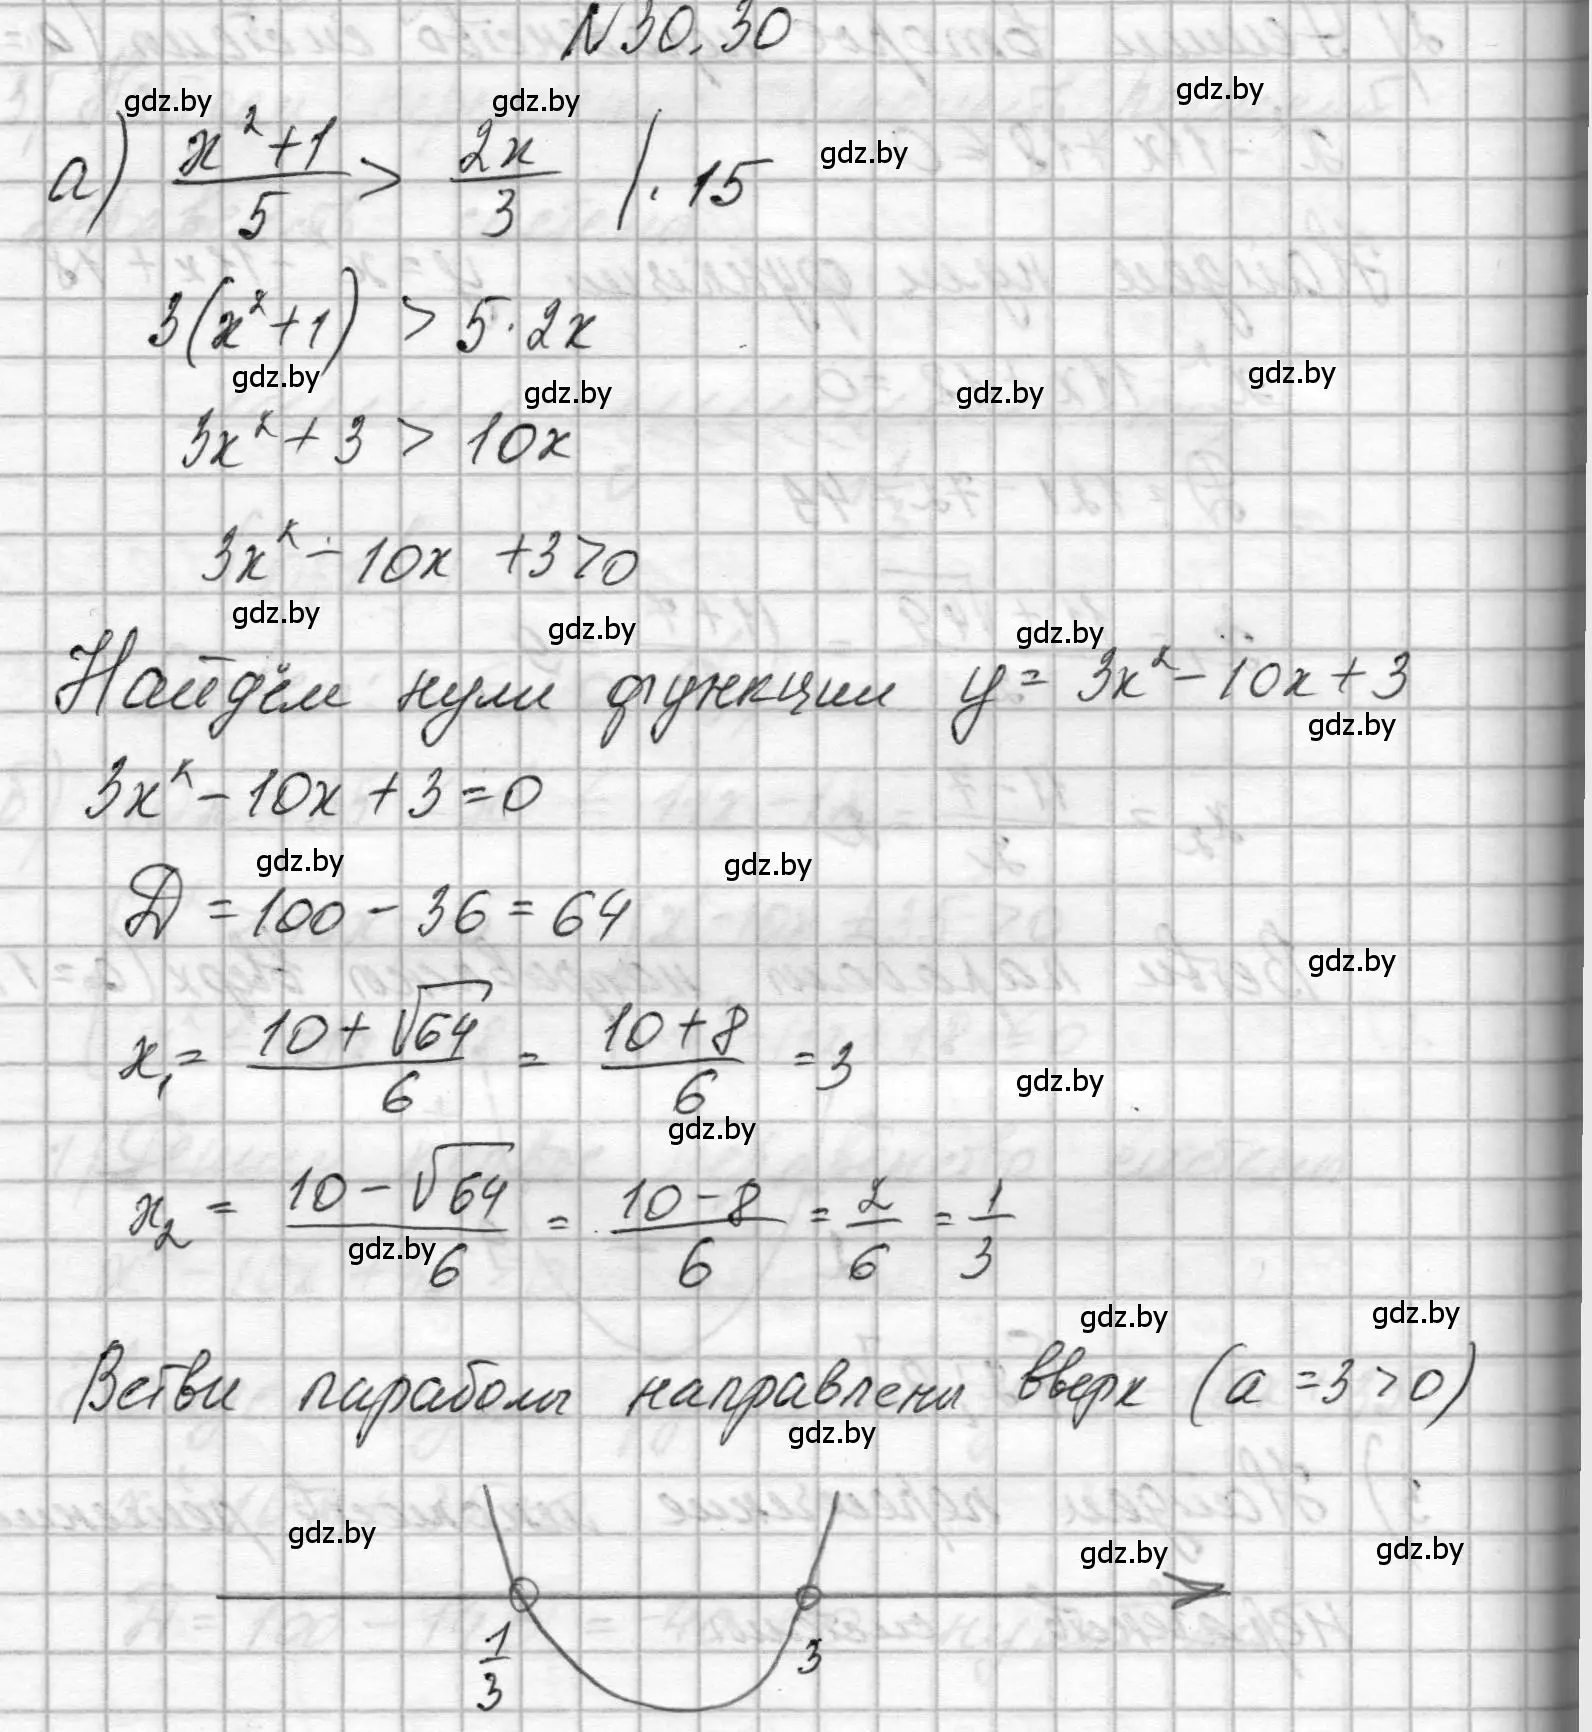 N 30.30
gdz.by gdz.by gdz.by
а) (x² + 1)/5 > 2x/3 | · 15 gdz.by
3(x² + 1) > 5 · 2x
gdz.by gdz.by gdz.by gdz.by
3x² + 3 > 10x
3x² - 10x + 3 > 0
gdz.by gdz.by gdz.by
Найдём нули функции y = 3x² - 10x + 3
gdz.by
3x² - 10x + 3 = 0
gdz.by gdz.by
D = 100 - 36 = 64
gdz.by
x₁ = (10 + √64)/6 = (10 + 8)/6 = 3
gdz.by
gdz.by
x₂ = (10 - √64)/6 = (10 - 8)/6 = 2/6 = 1/3
gdz.by
gdz.by gdz.by
Ветви параболы направлены вверх (a = 3 > 0)
gdz.by
gdz.by gdz.by gdz.by
1/3 3